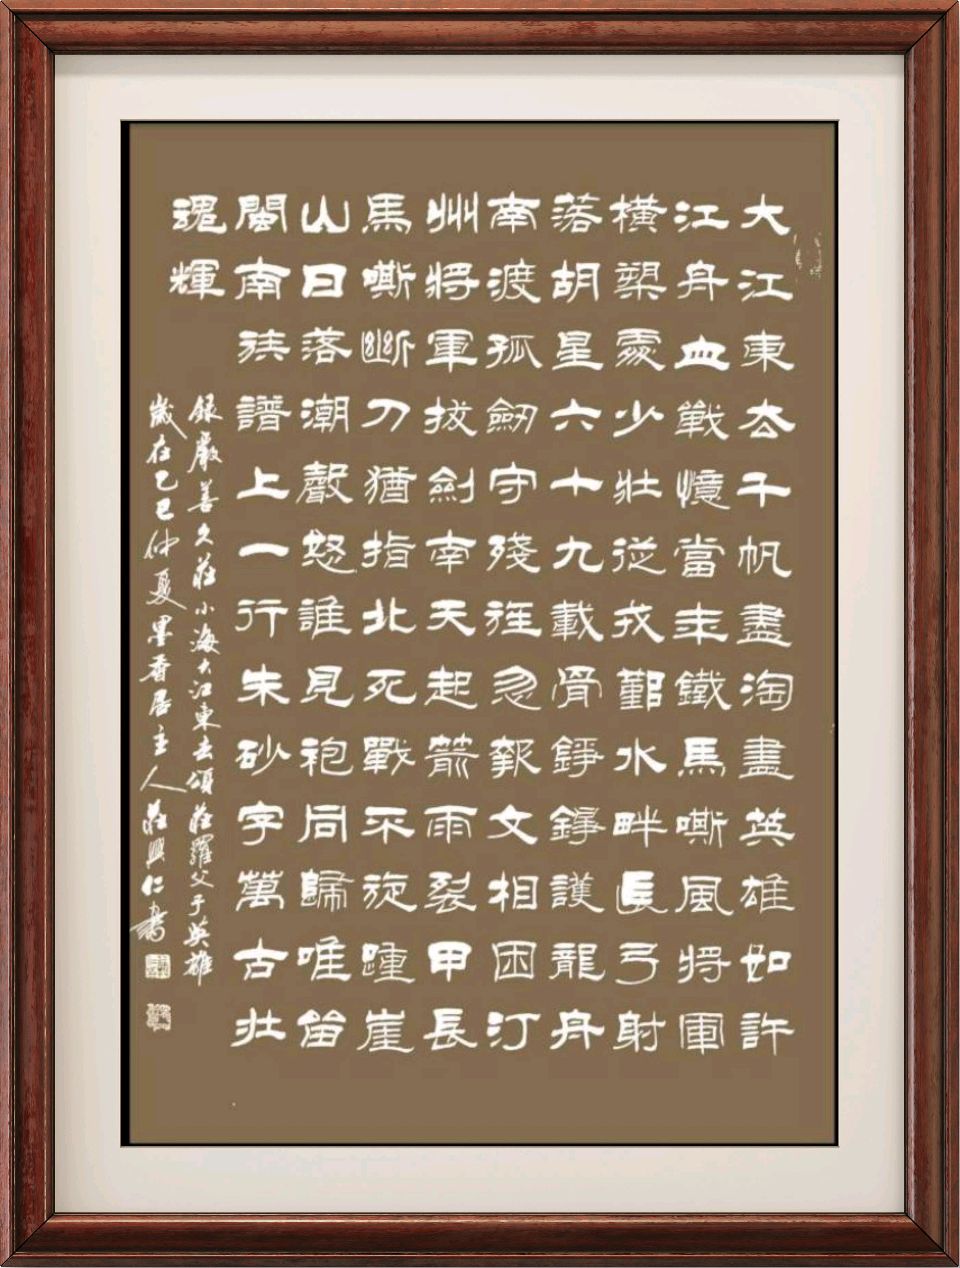 大江東去千帆盡淘盡英雄如許
江舟血戰憶當年鐵馬嘶風將軍
橫槊處少壯從戎鄞水畔長弓射
落胡星六十九載骨錚錚護龍舟
南渡孤劍守殘疆忽報文相困汀
州將軍拔劍南天起箭雨裂甲長
馬嘶斷刀猶指北死戰不旋踵崖
山日落潮聲怒誰見袍同歸唯留
閩南族譜上一行朱砂字萬古壯
魂輝
錄嚴善久莊小海大江東去頌莊羅父子英雄
歲在乙巳仲夏墨香居主人莊興仁書